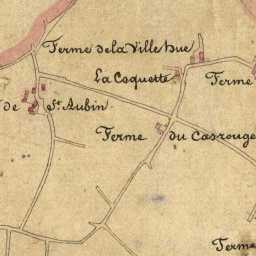 Ferme de la Ville hue
La Coquette
Ferme
de St. Aubin
Ferme du Casrouge
Ferme